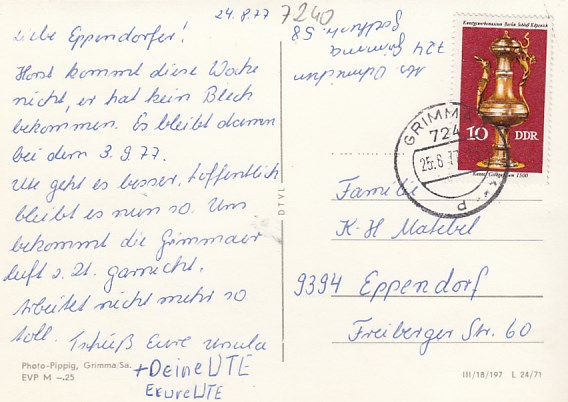 24.8.77
7240
Liebe Eppendorfer!
Horst kommt diese Woche
nicht, er hat kein Blech
bekommen. Es bleibt dann
bei dem 3.9.77.
Ute geht es besser, hoffentlich
bleibt es nun so. Uns
bekommt die Grimmaer
Luft z. Zt. garnicht.
Arbeitet nicht mehr so
toll. Tschüß Eure Ursula
+Deine UTE
Eure UTE
Abs.
724 Grimma
58
Kunstgewerbemuseum Berlin Schloß Köpenick
10 DDR
Kanne 1500
GRIMMA
724
25.8.77
Familie
K-H Matebel
9394 Eppendorf
Freiberger Str. 60
DTVL
Photo-Pippig, Grimma/Sa.
EVP M –.25
III/18/197 L 24/71